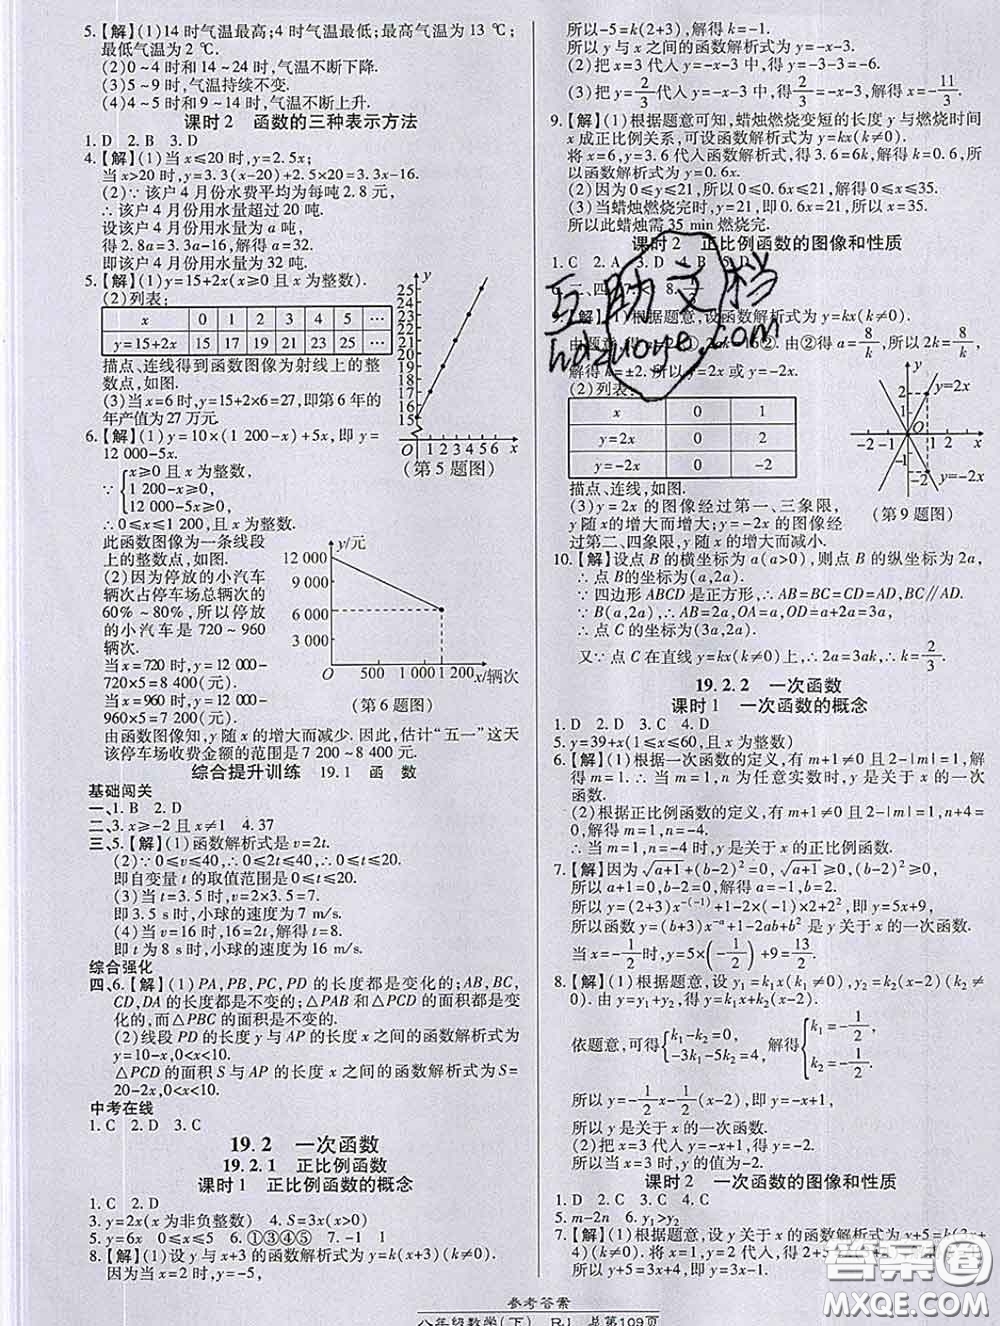 5.【解】(1)14 时气温最高;4 时气温最低;最高气温为 13 ℃;
最低气温为 2 ℃.
(2)0~4 时和 14~24 时,气温不断下降.
(3)5~9 时,气温持续不变.
(4)4~5 时和 9~14 时,气温不断上升.
课时 2 函数的三种表示方法
1. D 2. B 3. D
4.【解】(1)当 x≤20 时,y=2.5x;
当 x>20 时,y=3.3(x-20)+2.5×20=3.3x-16.
(2)∵该户 4 月份水费平均为每吨 2.8 元,
∴该户 4 月份用水量超过 20 吨.
设该户 4 月份用水量为 a 吨,
得 2.8a=3.3a-16,解得 a=32.
即该户 4 月份用水量为 32 吨.
5.【解】(1)y=15+2x(x≥0 且 x 为整数).
(2)列表:
x 0 1 2 3 4 5 …
y=15+2x 15 17 19 21 23 25 …
描点、连线得到函数图像为射线上的整
数点,如图.
(3)当 x=6 时,y=15+2×6=27,即第 6 年的
年产值为 27 万元.
y
25
24
23
22
21
20
19
18
17
16
15
O 1 2 3 4 5 6 x
(第 5 题图)
6.【解】(1)y=10×(1 200-x)+5x,即 y=
12 000-5x.
∵{x≥0 且 x 为整数,
1 200-x≥0,
12 000-5x≥0,
∴0≤x≤1 200,且 x 为整数.
此函数图像为一条线段
上的整数点,如图.
(2)因为停放的小汽车
辆次占停车场总辆次的
60%~80%,所以停放
的小汽车是 720~960
辆次.
当 x=720 时,y=12 000-
720×5=8 400(元).
当 x=960 时,y=12 000-
960×5=7 200(元).
y/元
12 000
9 000
6 000
3 000
O 500 1 000 1 200 x/辆次
(第 6 题图)
由函数图像知,y 随 x 的增大而减少. 因此,估计“五一”这天
该停车场收费金额的范围是 7 200~8 400 元.
综合提升训练 19.1 函 数
基础闯关
一、1. B 2. D
二、3. x≥-2 且 x≠1 4. 37
三、5.【解】(1)函数解析式是 v=2t.
(2)∵0≤v≤40,∴0≤2t≤40,∴0≤t≤20.
即自变量 t 的取值范围是 0≤t≤20.
(3)当 t=3.5 时,v=2×3.5=7.
即 3.5 s 时,小球的速度为 7 m/s.
(4)当 v=16 时,16=2t,解得 t=8.
即 t 为 8 s 时,小球的速度为 16 m/s.
综合强化
四、6.【解】(1)PA,PB,PC,PD 的长度都是变化的;AB,BC,
CD,DA 的长度都是不变的;△PAB 和△PCD 的面积都是变
化的,而△PBC 的面积是不变的.
(2)线段 PD 的长度 y 与 AP 的长度 x 之间的函数解析式为
y=10-x,0<x<10.
△PCD 的面积 S 与 AP 的长度 x 之间的函数解析式为 S=
20-2x,0<x<10.
中考在线
1. C 2. D 3. C
19.2 一次函数
19.2.1 正比例函数
课时 1 正比例函数的概念
1. C 2. D
3. y=2x(x 为非负整数) 4. S=3x(x>0)
5. y=6x 0≤x≤5 6. ①③④⑤ 7. -1 1
8.【解】(1)设 y 与 x+3 的函数解析式为 y=k(x+3)(k≠0).
因为当 x=2 时,y=-5,
所以-5=k(2+3),解得 k=-1.
所以 y 与 x 之间的函数解析式为 y=-x-3.
(2)把 x=3 代入 y=-x-3 中,得 y=-3-3=-6.
(3)把 y=2/3 代入 y=-x-3 中,得 2/3=-x-3,解得 x=-11/3.
9.【解】(1)根据题意可知,蜡烛燃烧变短的长度 y 与燃烧时间
x 成正比例关系,可设函数解析式为 y=kx(k≠0).
将 x=6,y=3.6 代入函数解析式,得 3.6=6k,解得 k=0.6,所
以函数解析式为 y=0.6x.
(2)因为 0≤y≤21,所以 0≤0.6x≤21,所以 0≤x≤35.
(3)当蜡烛燃烧完时,y=21,即 0.6x=21,所以 x=35.
所以此蜡烛需 35 min 燃烧完.
课时 2 正比例函数的图像和性质
1. C 2. A 3. D
互助文档
hdzuoye.com
【解】(1)根据题意,设函数解析式为 y=kx(k≠0).
解得 k=±2. 所以 y=2x 或 y=-2x.
(2)列表:
x 0 1
y=2x 0 2
y=-2x 0 -2
描点、连线,如图.
y
y=2x
2
1
-2 -1 O 1 2 x
-1
-2
y=-2x
(第 9 题图)
(3)y=2x 的图像经过第一、三象限,
y 随 x 的增大而增大;y=-2x 的图像经过
第二、四象限,y 随 x 的增大而减小.
10.【解】设点 B 的横坐标为 a(a>0),则点 B 的纵坐标为 2a,
∴点 B 的坐标为(a,2a).
∵四边形 ABCD 是正方形,∴AB=BC=CD=AD,BC∥AD.
∵B(a,2a),∴AB=2a,OA=a,OD=a+2a=3a,
∴点 C 的坐标为(3a,2a).
又∵点 C 在直线 y=kx(k≠0)上,∴2a=3ak,∴k=2/3.
19.2.2 一次函数
课时 1 一次函数的概念
1. D 2. D 3. C 4. D
5. y=39+x(1≤x≤60,且 x 为整数)
6.【解】(1)根据一次函数的定义,有 m+1≠0 且 2-|m|=1,
解得 m=1. ∴m=1,n 为任意实数时,y 是关于 x 的一次
函数.
(2)根据正比例函数的定义,有 m+1≠0 且 2-|m|=1,n+4=
0,解得 m=1,n=-4.
∴当 m=1,n=-4 时,y 是关于 x 的正比例函数.
7.【解】因为√(a+1)+(b-2)²=0,√(a+1)≥0,(b-2)²≥0,
所以 a+1=0,b-2=0,解得 a=-1,b=2.
所以 y=(2+3)x^-(-1)+1-2×(-1)×2+2²,即 y=5x+9,
所以函数 y=(b+3)x^-a+1-2ab+b² 是 y 关于 x 的一次函数.
当 x=-1/2 时,y=5×(-1/2)+9=13/2.
8.【解】(1)根据题意,设 y₁=k₁x(k₁≠0),y₂=k₂(x-2)(k₂≠
0). 由 y=y₁+y₂,得 y=k₁x+k₂(x-2).
依题意,可得{k₁-k₂=0,
-3k₁-5k₂=4,
解得{k₁=-1/2,
k₂=-1/2.
所以 y=-1/2x-1/2(x-2),即 y=-x+1.
所以 y 是关于 x 的一次函数.
(2)把 x=3 代入 y=-x+1,得 y=-2.
所以当 x=3 时,y 的值为-2.
课时 2 一次函数的图像和性质
1. D 2. D 3. C 4. C
5. m-2n 6. y₁>y₂
7.【解】(1)根据题意,设 y 关于 x 的函数解析式为 y+5=k(3x+
4)(k≠0). 将 x=1,y=2 代入,得
所以 y+5=3x+4,即 y=3x-1.
答案圈
参考答案
八年级数学(下) RJ 总第109页